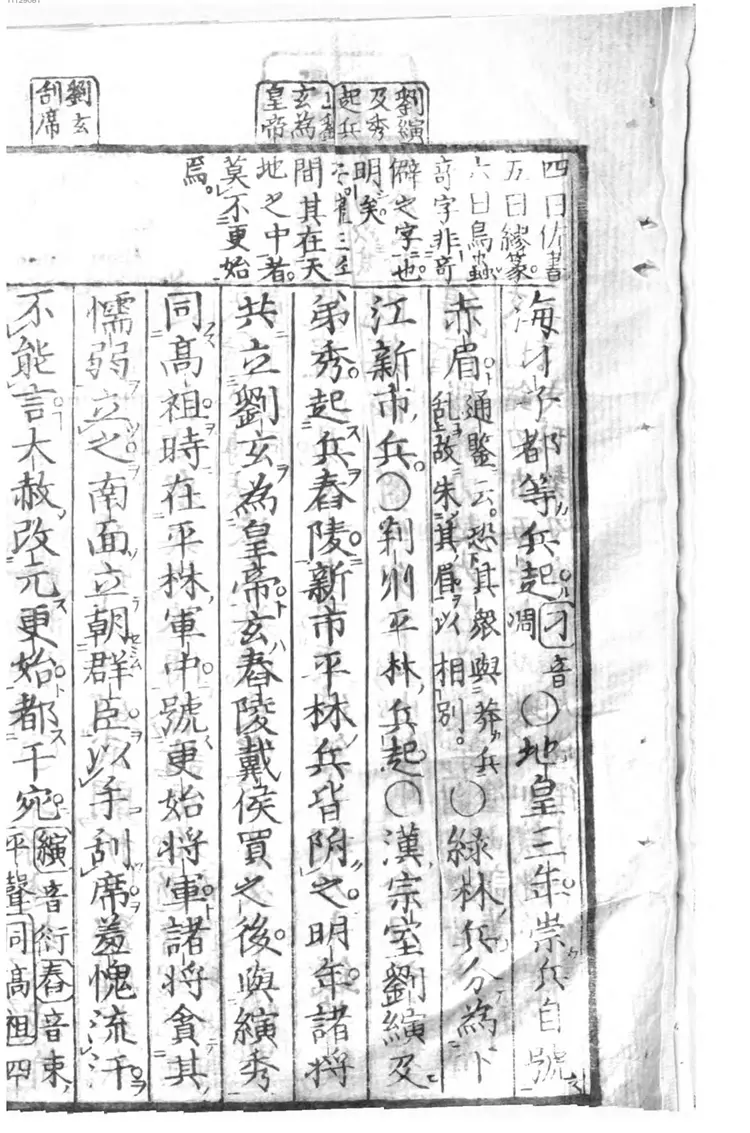 11129081
劉縯
及秀
起兵
立劉
玄為
皇帝
劉玄
刮席
四曰佐書
五曰繆篆
六曰鳥蟲
奇字非奇
僻之字也
明矣
間其在天
地之中者
莫不更始
焉
海刁子都等兵起刁音凋○地皇三年崇兵自號
赤眉通鑒云恐其眾與莽兵亂故朱其眉以相別○綠林兵分為下
江新市兵○荊州平林兵起○漢宗室劉縯及
弟秀起兵舂陵新市平林兵皆附之明年諸將
共立劉玄為皇帝玄舂陵戴侯買之後與縯秀
同高祖時在平林軍中號更始將軍諸將貪其
懦弱立之南面立朝群臣以手刮席羞愧流汗
不能言大赦改元更始都于宛縯音衍舂音東平聲同高祖四